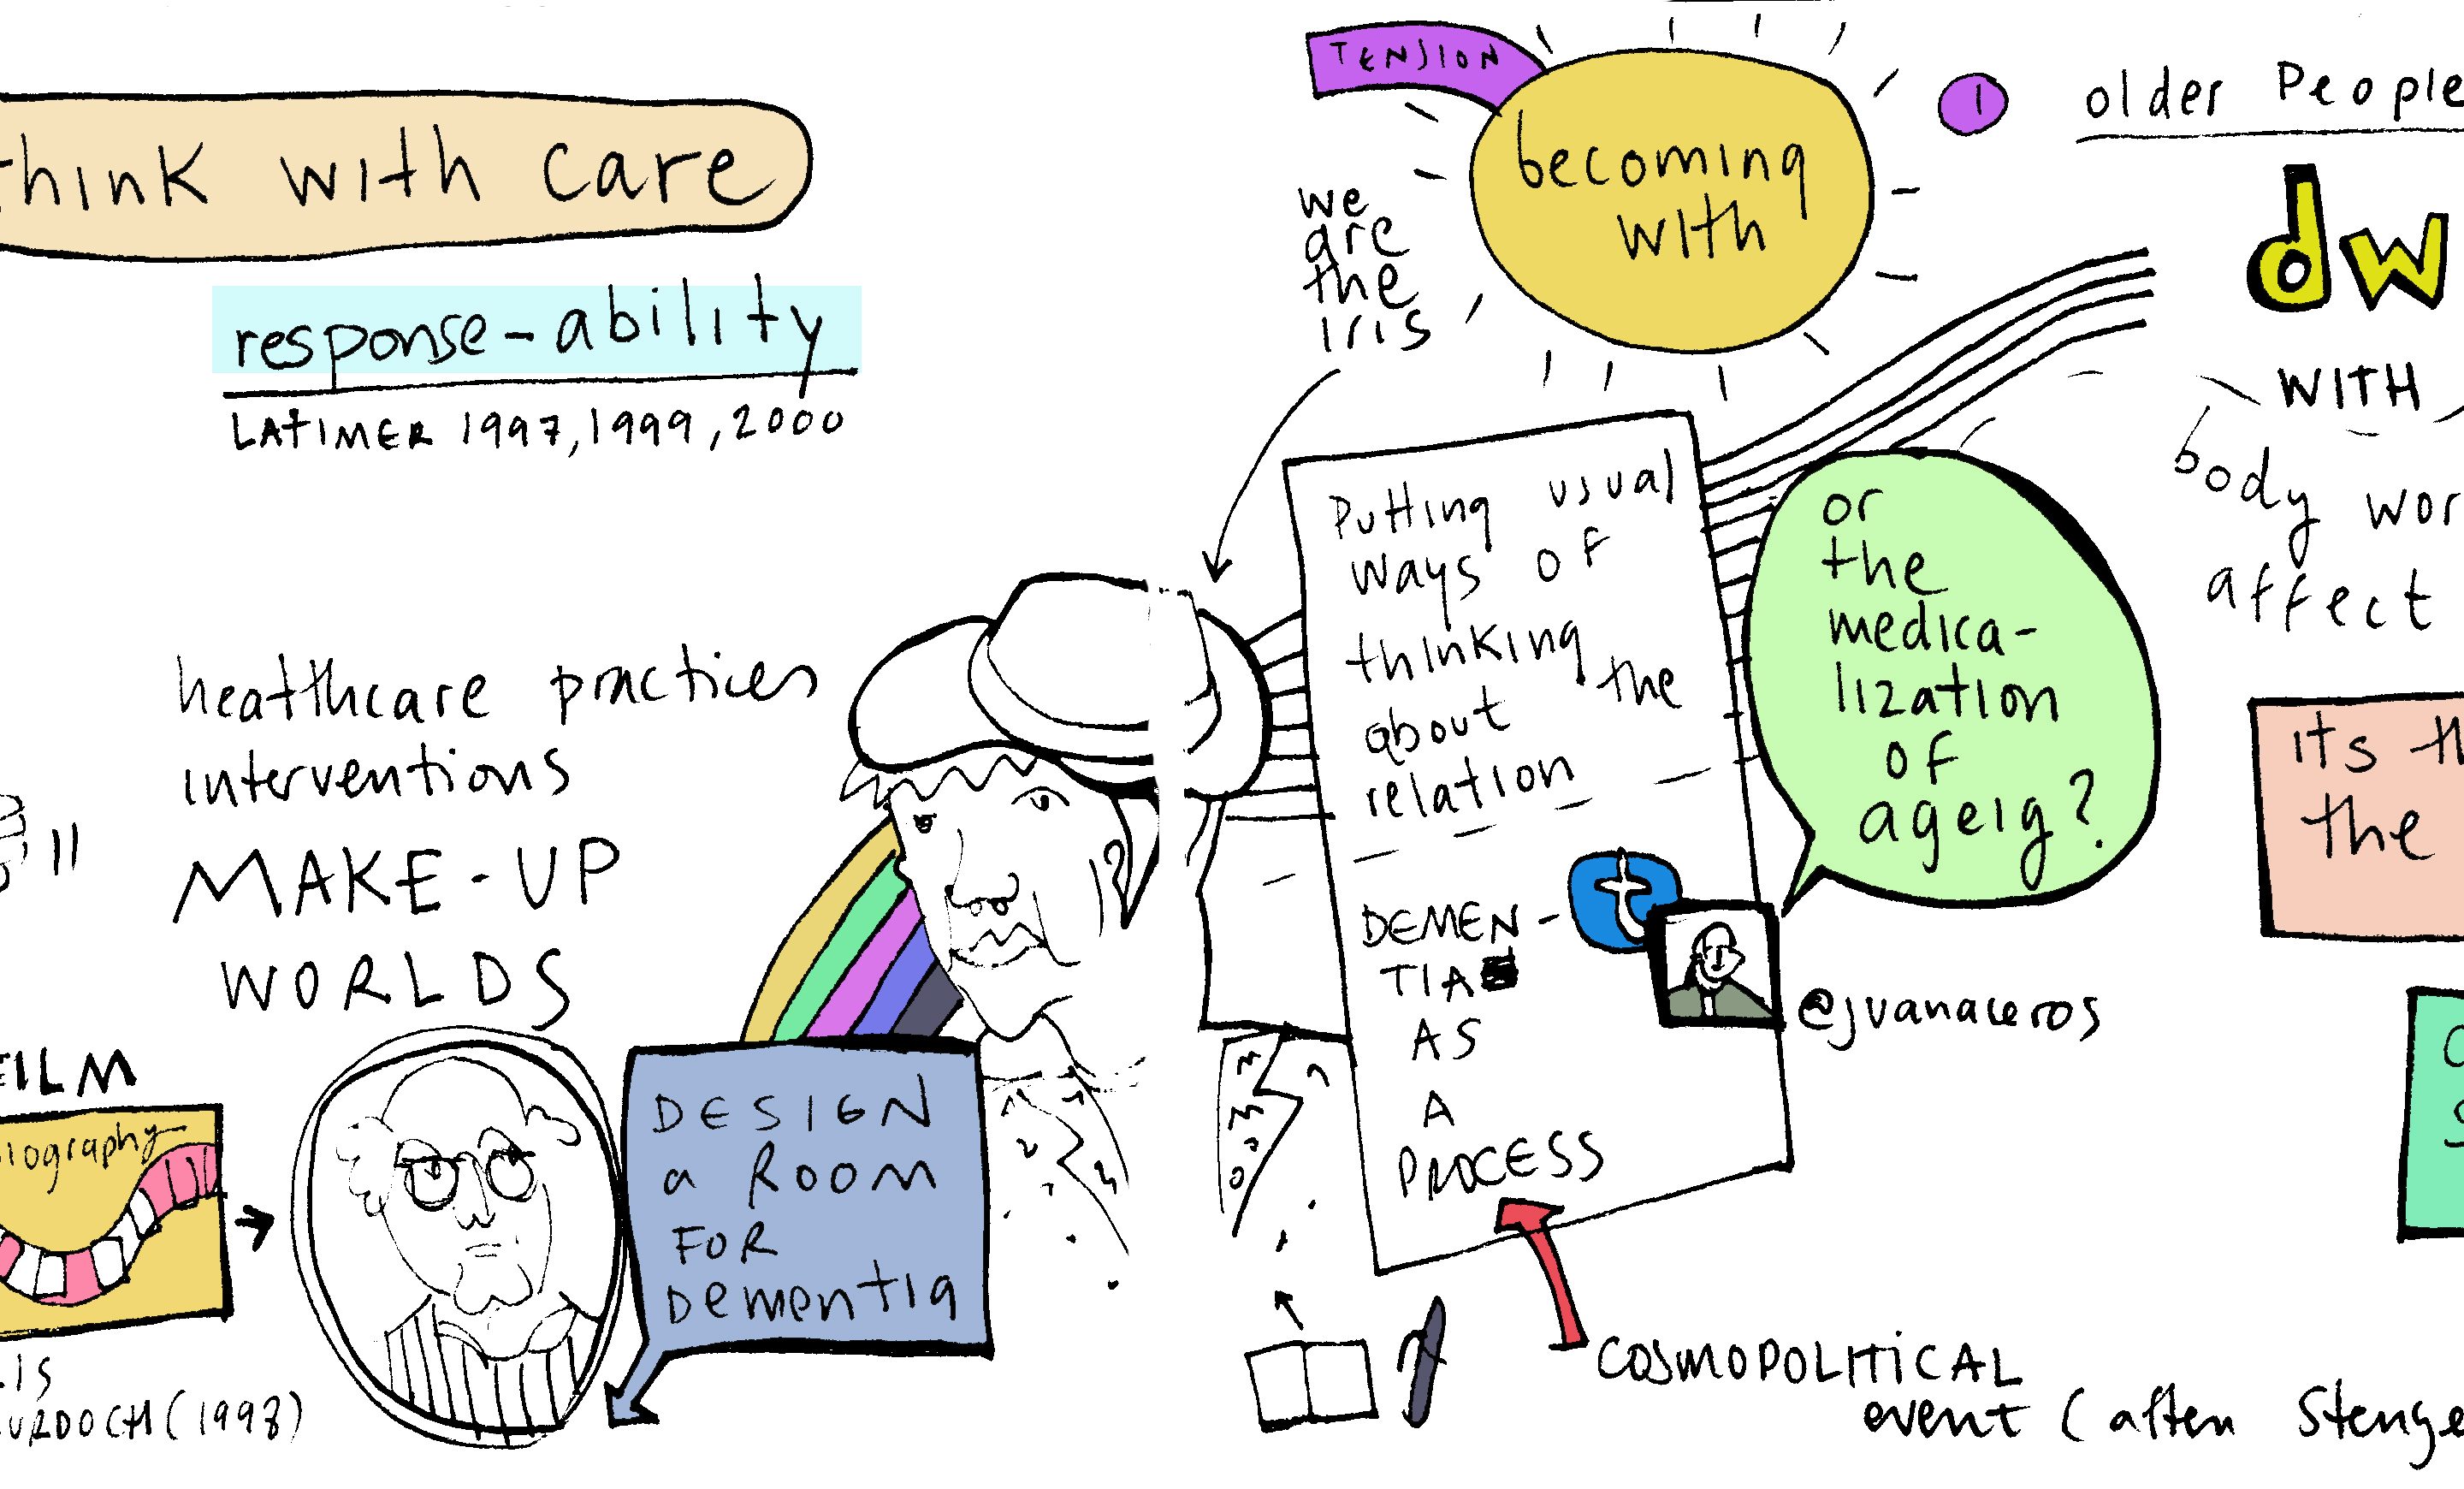 think with care
response-ability
LATIMER 1997, 1999, 2000
healthcare practices
interventions
MAKE-UP
WORLDS
FILM
iography
IS
URDOCH (1998)
DESIGN
a ROOM
FOR
Dementia
TENSION
becoming
with
we
are
the
iris
Putting usual
ways of
thinking
about the
relation
DEMEN-
TIA
AS
A
PROCESS
t
@juanaceros
or
the
medica-
lization
of
ageig?
COSMOPOLITICAL
event (after Stenge
1
older People
dw
WITH
body wor
affect
its th
the